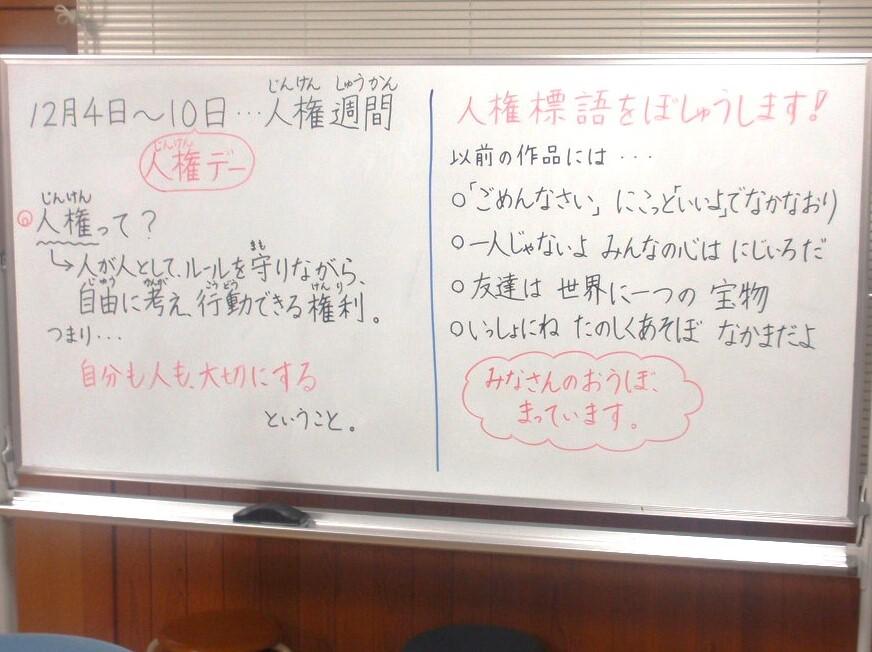 じんけん しゅうかん
12月4日～10日…人権週間
じんけん
人権デー
じんけん
Q人権って？
まも
↳人が人として、ルールを守りながら、
じゆう かんが こうどう けんり
自由に考え、行動できる権利。
つまり…
自分も人も、大切にする
ということ。
人権標語をぼしゅうします！
以前の作品には…
○「ごめんなさい」 にこっと「いいよ」でなかなおり
○一人じゃないよ みんなの心は にじいろだ
○友達は 世界に一つの 宝物
○いっしょにね たのしくあそぼ なかまだよ
みなさんのおうぼ、
まっています。